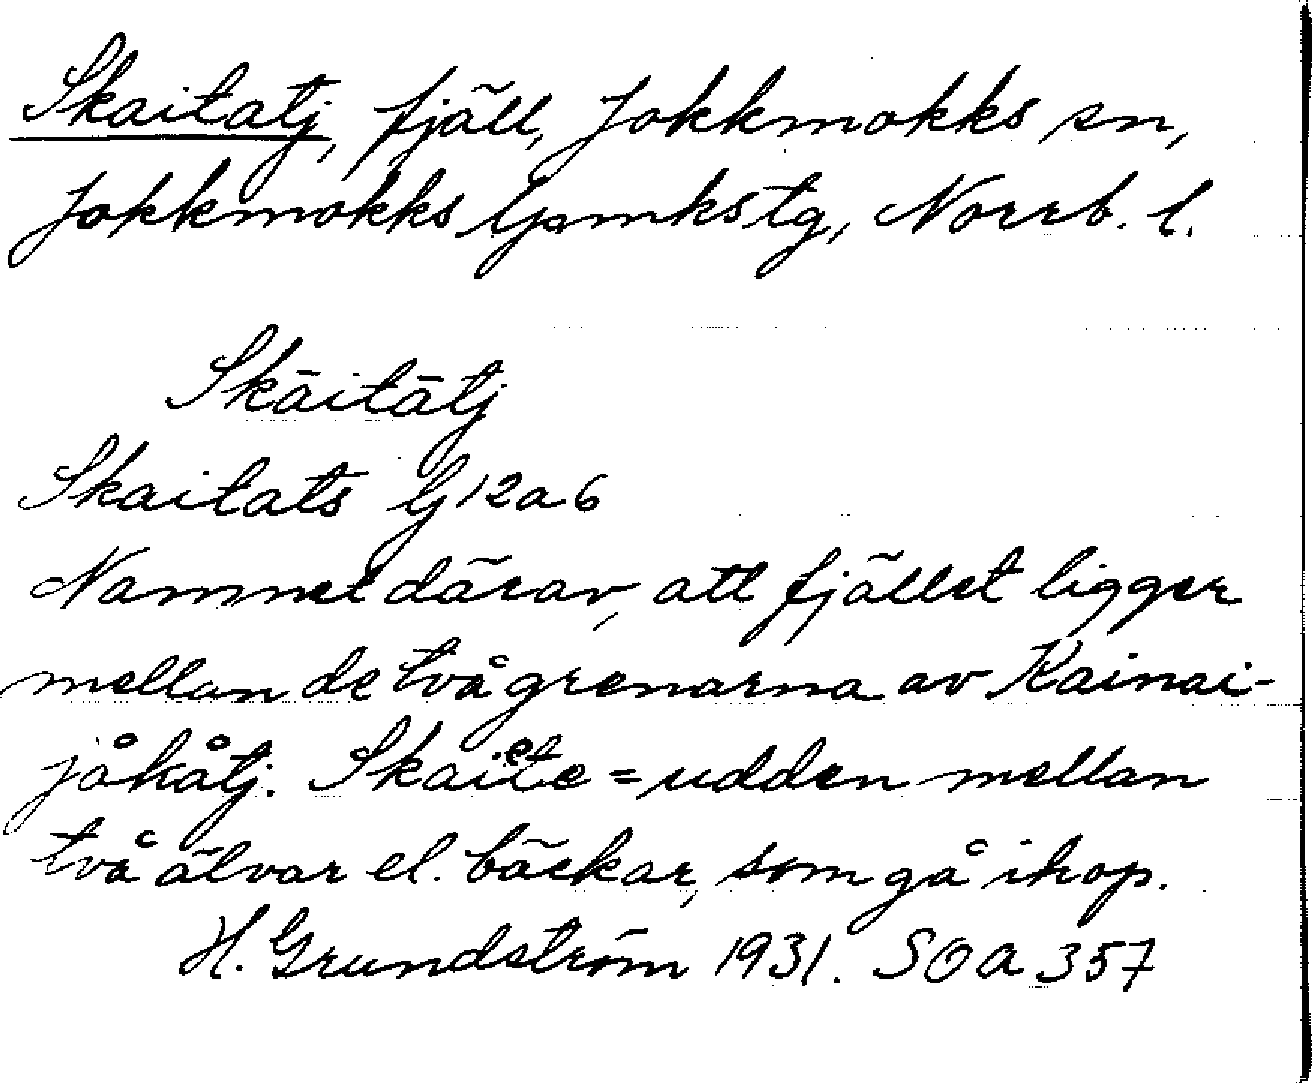 Skaitatj, fjäll, Jokkmokks sn,
Jokkmokks lpmkstg, Norrb. l.
Skāitātj
Skaitats lj 12a6
Namnet därav, att fjället ligger
mellan de två grenarna av Kainai-
jåkåtj. Skaite = udden mellan
två älvar el. bäckar, som gå ihop.
H. Grundström 1931. SOA 357